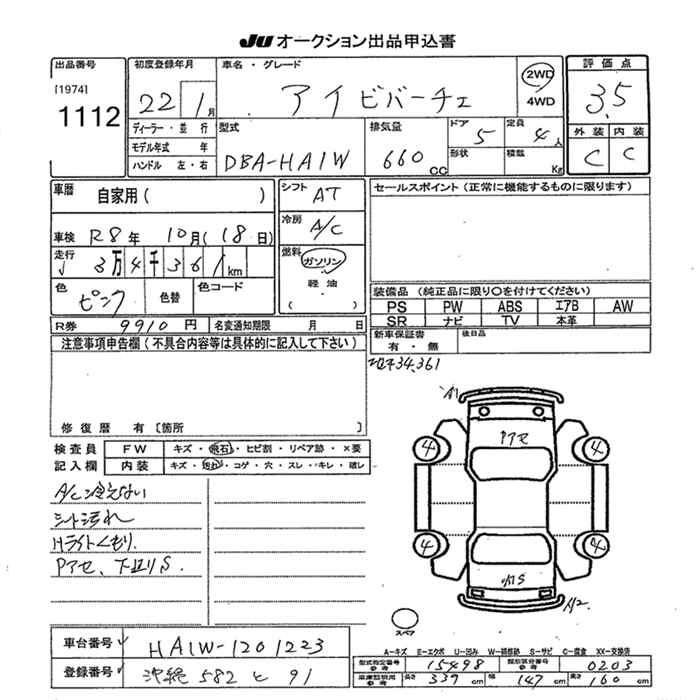 JU オークション出品申込書
出品番号
[1974]
1112
初度登録年月
22 / 1月
車名・グレード
アイビバーチェ
2WD
4WD
評価点
3.5
外装 内装
C C
ディーラー・並行
モデル年式 年
ハンドル 左・右
型式
DBA-HA1W
排気量
660cc
ドア 5
形状
定員 4人
積載 Kg
車暦 自家用( )
車検 R8年 10月(18日)
走行 3万4千361km
色 ピンク
色替
色コード
R券 9910円
名変通知期限 月 日
シフト AT
冷房 A/C
燃料
ガソリン
軽油
( )
セールスポイント(正常に機能するものに限ります)
装備品(純正品に限り○を付けてください)
PS PW ABS エアB AW
SR ナビ TV 本革
新車保証書
有・無
後日品
34,361
注意事項申告欄(不具合内容等は具体的に記入して下さい)
修復歴 有〔箇所
検査員
記入欄
FW キズ・飛石・ヒビ割・リペア跡・×要
内装 キズ・汚れ・コゲ・穴・スレ・キレ・破レ
A/C冷えない
シート汚れ
Hライトくもり.
Pアセ、下廻りS.
A1
Pアセ
4
4
4
4
A2
スペア
車台番号 HA1W-1201223
登録番号 沖縄 582 ヒ 91
A-キズ E-エクボ U-凹み W-補修跡 S-サビ C-腐食 XX-交換済
型式指定番号
参考
15498
類別区分番号
参考
0203
長さ 339cm
幅 147cm
高さ 160cm